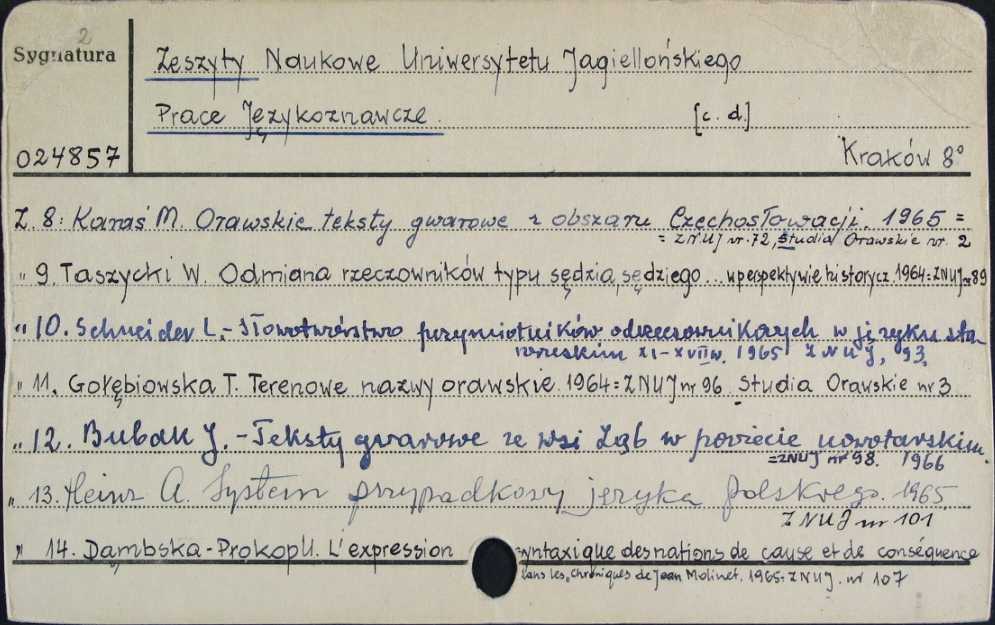 2
Sygnatura
Zeszyty Naukowe Uniwersytetu Jagiellońskiego
Prace Językoznawcze [c. d.]
024857
Kraków 8°
Z. 8: Karaś M. Orawskie teksty gwarowe z obszaru Czechosłowacji. 1965 =
= ZNUJ nr. 72, Studia Orawskie nr. 2
„ 9. Taszycki W. Odmiana rzeczowników typu sędzia, sędziego... w perspektywie historycz. 1964 = ZNUJ nr 89
„ 10. Schneider L. - Słowotwórstwo przymiotników odrzeczownikowych w języku sta-
roruskim XI-XVII w. 1965 ZNUJ, 93.
„ 11. Gołębiowska T. Terenowe nazwy orawskie. 1964 = ZNUJ nr 96. Studia Orawskie nr 3
„ 12. Bubak J. - Teksty gwarowe ze wsi Ząb w powiecie nowotarskim.
= ZNUJ nr 98. 1966
„ 13. Heinz A. System przypadkowy języka polskiego. 1965.
ZNUJ nr 101
„ 14. Dąmbska-Prokop U. L'expression syntaxique des nations de cause et de conséquence
dans les „Chroniques de Jean Molinet. 1965 = ZNUJ. nr 107